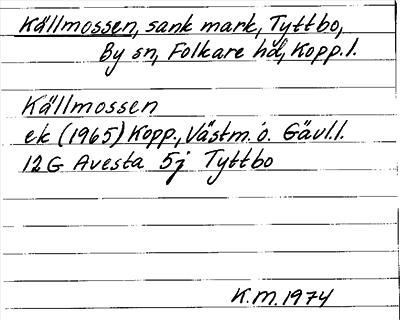 Källmossen, sank mark, Tyttbo,
By sn, Folkare hd, Kopp.l.
Källmossen
ek (1965) Kopp., Västm. o. Gävl.l.
12G Avesta 5j Tyttbo
K.M. 1974